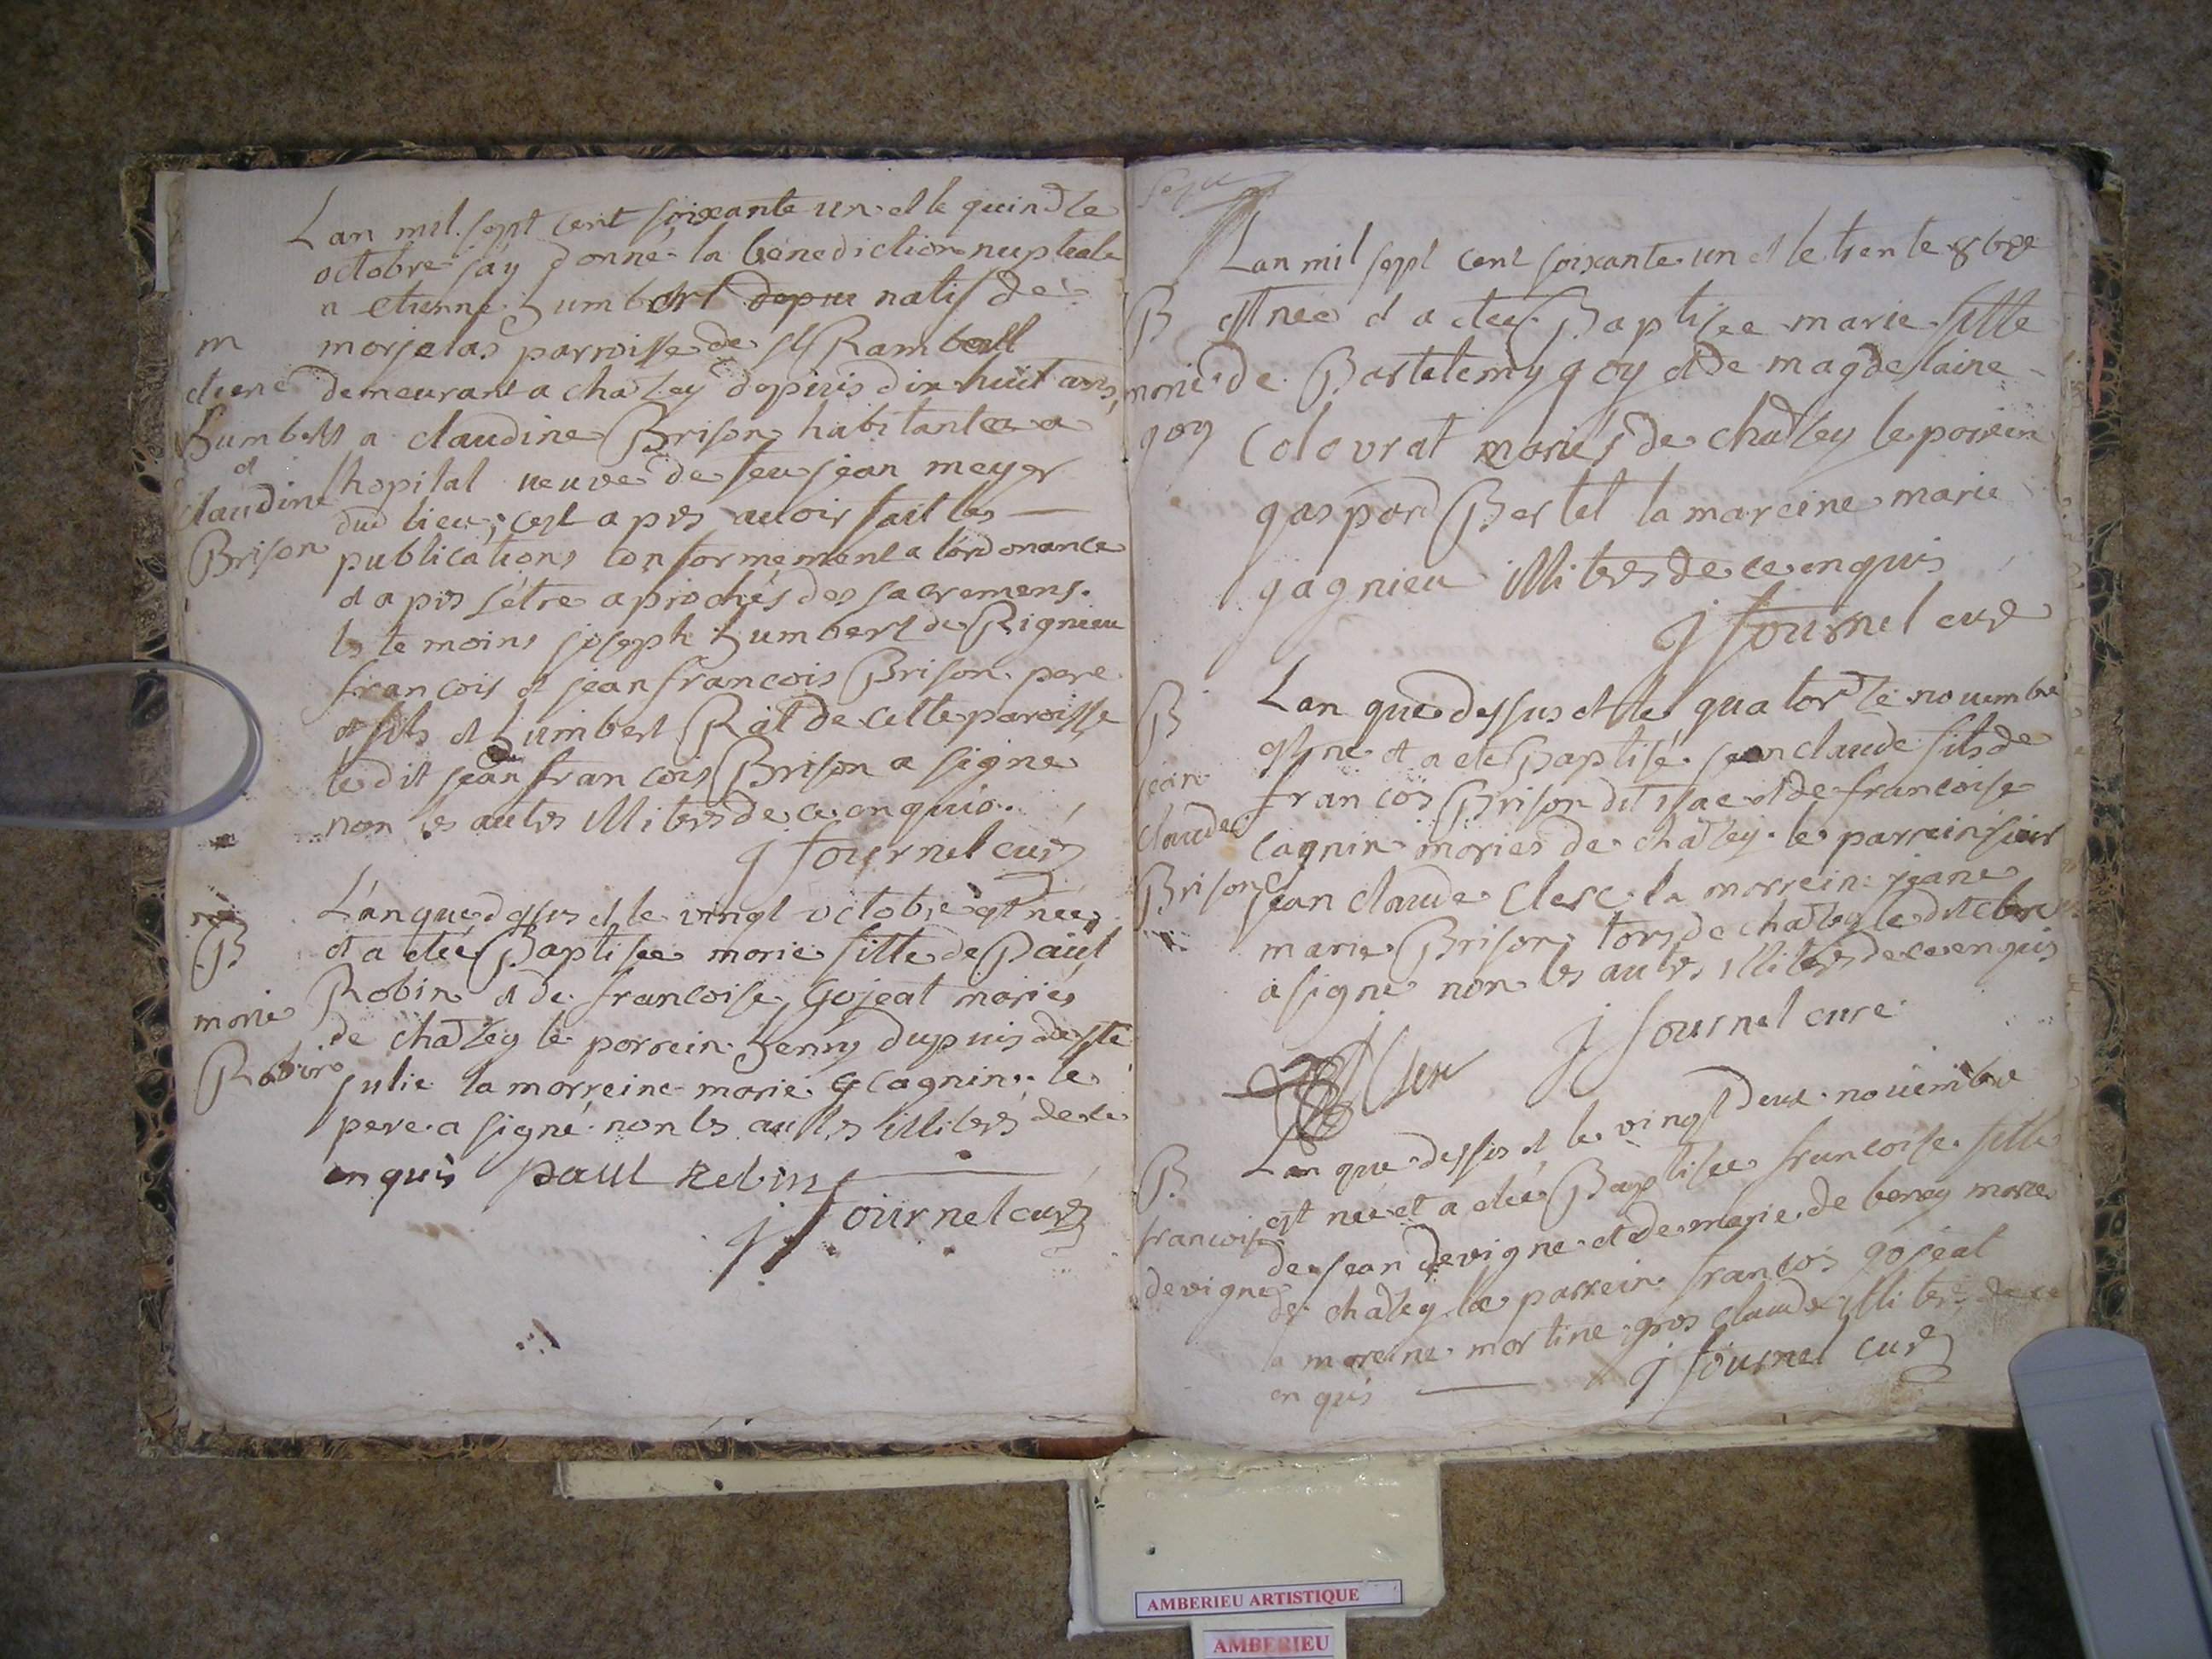 Lan mil sept cent soixante un et le quindze
octobre jáy donné la bénediction nuptiale
a etienne humbert depui natif de
m
morjelas parroisse de st Rambert
etiene
demeurant a chazey depuis dix huit ans,
humbert
a claudine Brison habitante a
et
lhopital veuve de feu jean meyer
claudine
dud lieu, cest apres avoir fait les
Brison
publications conformement a lordonance
et apres sêtre aprochés des sacremens.
les temoins joseph humbert de Rignieu
francois et jean francois Brison pere
et fils et humbert Rat de cette paroisse
le dit jean francois Brison a signé
non les autres illiterés de ce enquis.
j fournel curé
Lan que dessus et le vingt octobre est née
B
et a eteé Baptisee marie fille de Paul
marie
Robin et de francoise gojeat mariés
Robin
de chazey le parrein henry dupuis de ste
julie la marreine marie cagnin, le
pere a signé non les autres illiterés de ce
enquis paul Robin
j fournel curé
Lan mil sept cent soixante un et le trente 8bre
B
est née et a eteé Baptisee marie fille
marie
de Bartelemy goy et de magdelaine
goy
Colovrat mariés de chazey le parrein
gaspard Bertet la mareine marie
gagnieu illiterés de ce enquis
j fournel curé
B
Lan que dessus et le quatorze novembre
est né et a eté Baptisé jean claude fils de
jean
francois Brison dit isac et de francoise
claude
cagnin mariés de chazey. le parrein sieur
Brison
jean claude Clerc la marrein jeane
marie Brison, tous de chazey le dit clerc
a signé non les autres illiterés de ce enquis
Clerc j fournel curé
Lan que dessus et le vingt deux novembre
B
est neé et a eteé Baptisee francoise fille
francoise
de jean devigne et de marie de beney mariés
devigne
de chazey le parrein francois gojeat
la mareine martine gros claude illiterés de ce
enquis j fournel curé
AMBERIEU ARTISTIQUE
AMBERIEU